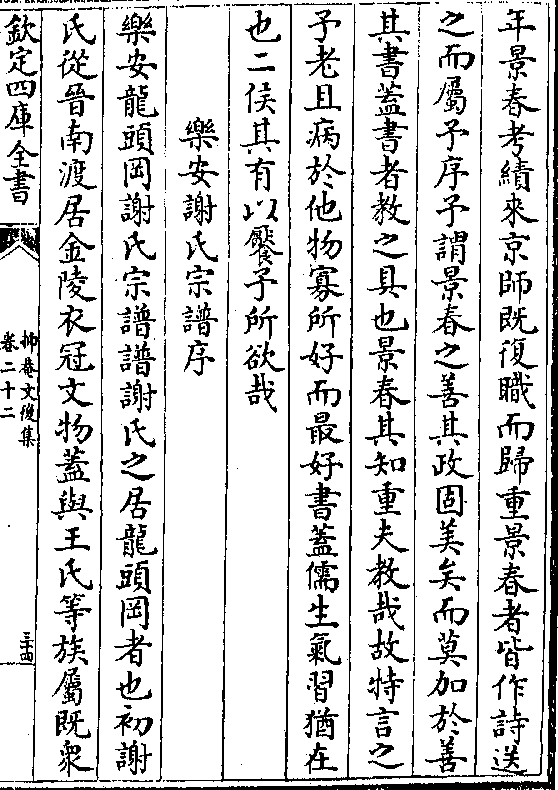 年景春考績來京師既復職而歸重景春者皆作詩送
之而屬予序予謂景春之善其政固美矣而莫加於善
其書蓋書者教之具也景春其知重夫教哉故特言之
予老且病於他物寡所好而最好書蓋儒生氣習猶在
也二侯其有以饜予所欲哉
樂安謝氏宗譜序
樂安龍頭岡謝氏宗譜譜謝氏之居龍頭岡者也初謝
氏從晉南渡居金陵衣冠文物蓋與王氏等族屬既衆
欽定四庫全書
抑菴文後集
卷二十二
三十四